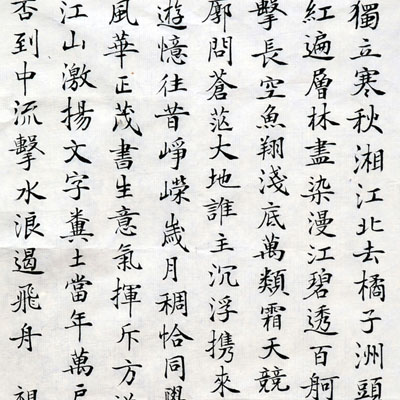 獨立寒秋湘江北去橘子洲頭
紅遍層林盡染漫江碧透百舸
擊長空魚翔淺底萬類霜天競
廓問蒼茫大地誰主沉浮携來
遊憶往昔崢嶸歲月稠恰同學
風華正茂書生意氣揮斥方
江山激揚文字糞土當年萬戶
否到中流擊水浪遏飛舟